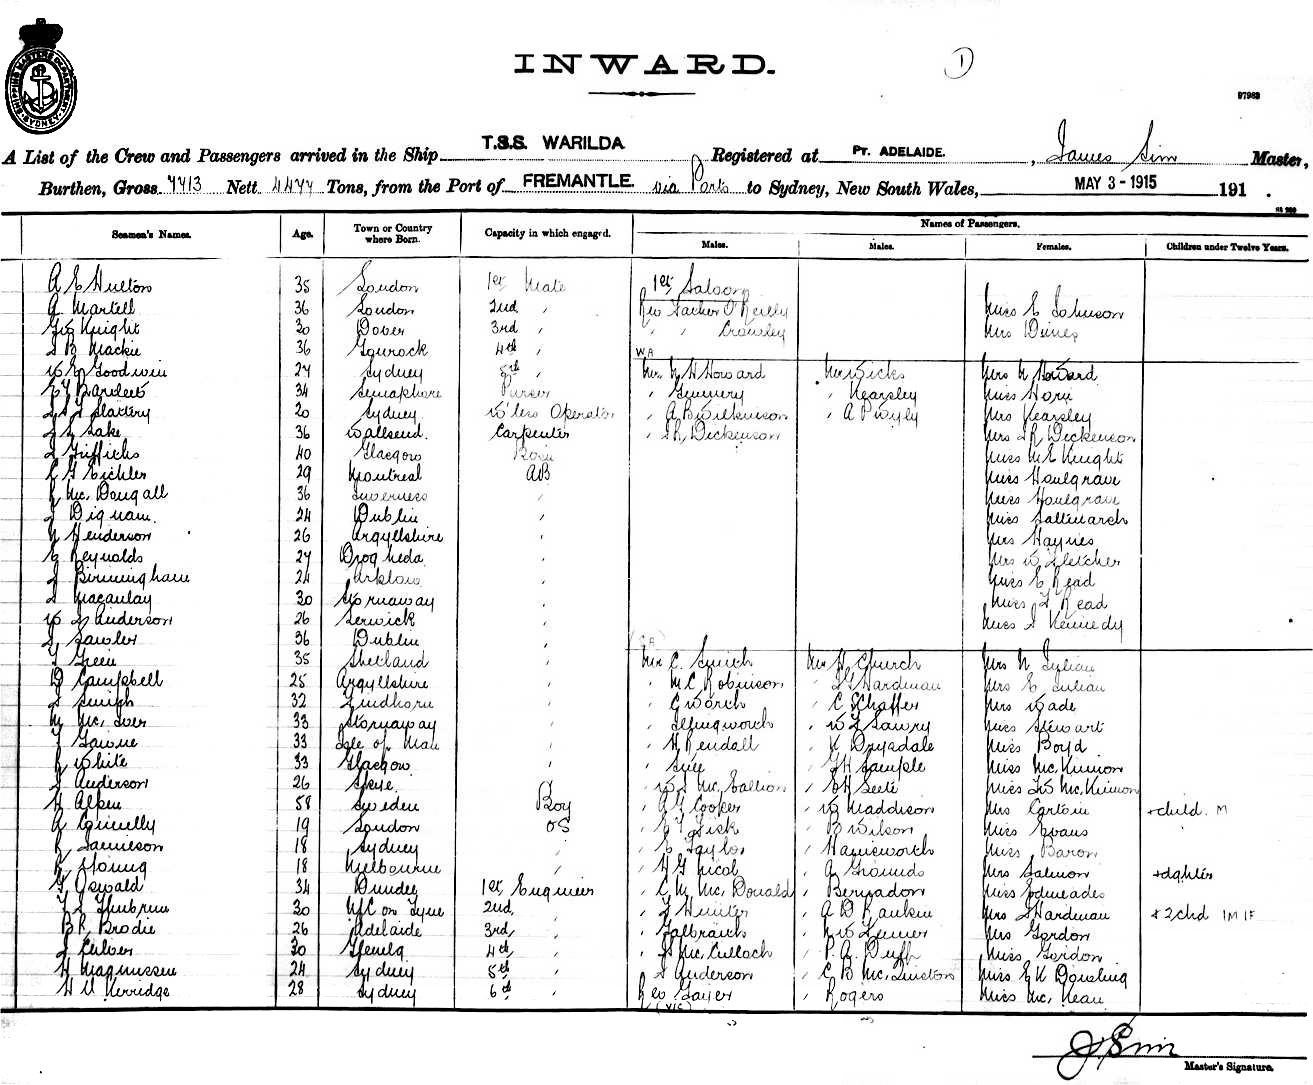 SHIPPING MASTERS DEPARTMENT SYDNEY
INWARD.
1
97963
A List of the Crew and Passengers arrived in the Ship T.S.S. WARILDA Registered at PT. ADELAIDE. , James Sim Master,
Burthen, Gross 7713 Nett 4477 Tons, from the Port of FREMANTLE. via Ports to Sydney, New South Wales, MAY 3 - 1915 191 .
Names of Passengers.
Seamen's Names. Age. Town or Country where Born. Capacity in which engaged. Males. Males. Females. Children under Twelve Years.
A E Hulton 35 London 1st Mate 1st Saloon
A Martell 36 London 2nd " Rev Father O'Reilly Miss E Johnson
Geo Knight 30 Dover 3rd " " " Crowley Mrs Dines
36 Gourock 4th "
WA
W E Goodwin 27 Sydney 5th " Mr N H Howard Mr Wicks Mrs N Howard
34 Semaphore Purser " " Kearsley Miss Horn
Slattery 20 Sydney W'less Operator " A B Wilkinson " A P Wyly Mrs Kearsley
Lake 36 Wallsend. Carpenter " Dickenson Mrs Dickenson
Griffiths 40 Glasgow Miss M E Knight
Eichler 29 Montreal AB Miss Houlgrave
Mc. Dougall 36 Inverness " Miss Houlgrave
Dignam. 24 Dublin " Miss
N Henderson 26 Argyllshire " Mrs Haynes
E Reynolds 27 Drogheda " Mrs W Fletcher
J Birmingham 24 Arklow " Miss E Read
Macaulay 30 Stornaway " Miss Read
Anderson 26 Lerwick " Miss Kennedy
Lawler 36 Dublin "
SA
T Green 35 Shetland " Mr C. Smith Mr H Church Mrs N Julian
D Campbell 25 Argyllshire " " M C Robinson " Hardman Mrs E Julian
Smith 32 Findhorn " " C Worth " C Schaffer Mrs Wade
M Mc. Iver 33 Stornaway " " Illingworth " W Lawry Miss Stewart
33 Isle of Man " " H Kendall " K Drysdale Miss Boyd
R White 33 Glasgow " " " Sample Miss Mc. Kinnon
Anderson 26 Skye. " " Mc. Callion " Miss Mc. Kinnon
H 58 Sweden Boy " Cooper " W Maddison Mrs + child. M
A Connelly 19 London OS " Fisk " B Wilson Miss Evans
R Jamieson 18 Sydney " " C Taylor " Hainsworth Miss Baron
R Young 18 Melbourne " " H G Nicol " A Grounds Mrs Salmon + dghter
Oswald 34 Dundee 1st Engineer " C M Mc. Donald " Miss Edmeades
30 N/C on Tyne 2nd " " Hunter " A D Rankin Mrs Hardman + 2 chd 1M 1F
B R Brodie 26 Adelaide 3rd " " Galbraith " Mrs Gordon
Culver 30 Glenelg 4th " " Mc. Culloch " P. A. Duffy Miss Gordon
H Magnussen 24 Sydney 5th " " Anderson " C B Mc. Miss E K Dowling
H V Kerridge 28 Sydney 6th " Rev " Rogers Miss Mc. Kean
(VIC)
J Sim
Master's Signature.